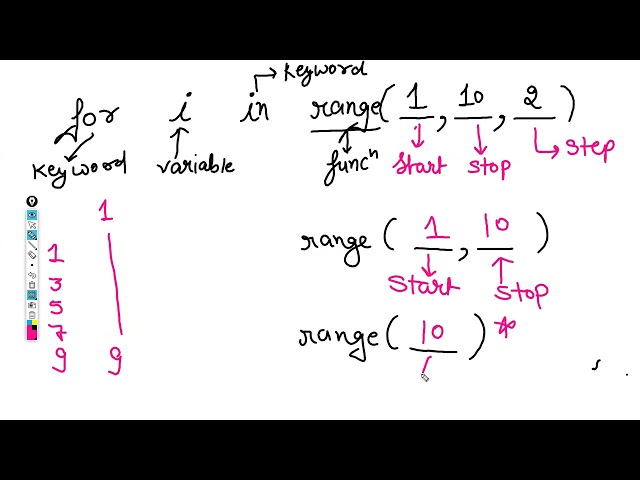 keyword
for i in range(1,10,2)
keyword variable funcⁿ start stop step
1
range(1,10)
1
start stop
3
5
range(10)*
7
9 9